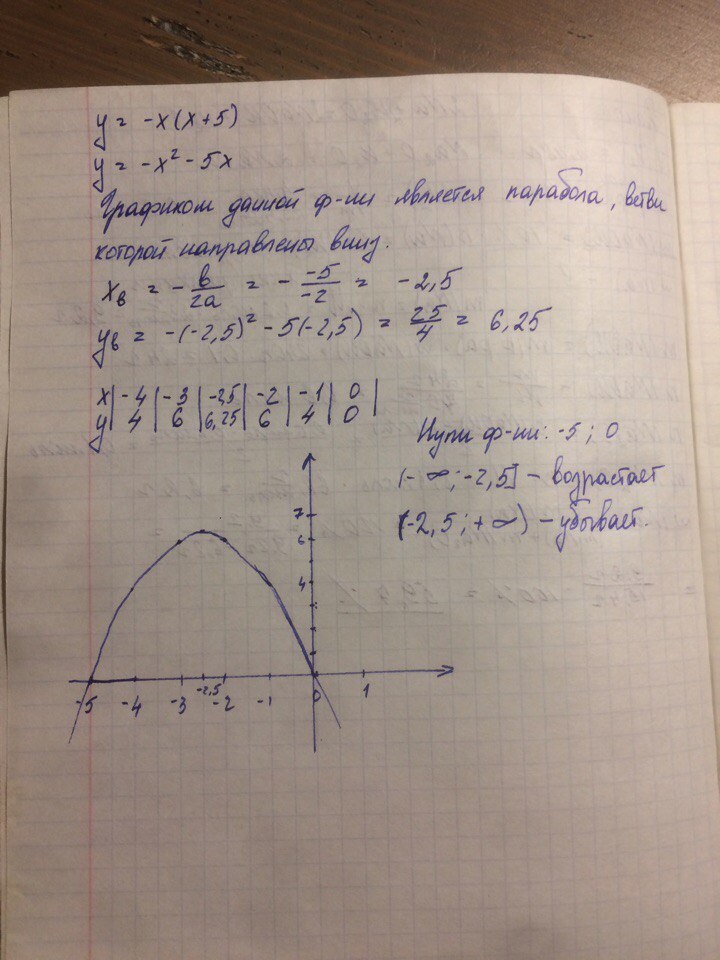 y = -x(x+5)
y = -x² - 5x
Графиком данной ф-ии является парабола, ветви
которой направлены вниз.
xв = - в/2a = - -5/-2 = -2,5
yв = -(-2,5)² - 5(-2,5) = 25/4 = 6,25
x | -4 | -3 | -2,5 | -2 | -1 | 0 |
y | 4 | 6 | 6,25 | 6 | 4 | 0 |
Нули ф-ии: -5; 0
(-∞; -2,5] - возрастает
(-2,5; +∞) - убывает.
7
6
4
-5 -4 -3 -2,5 -2 -1 0 1